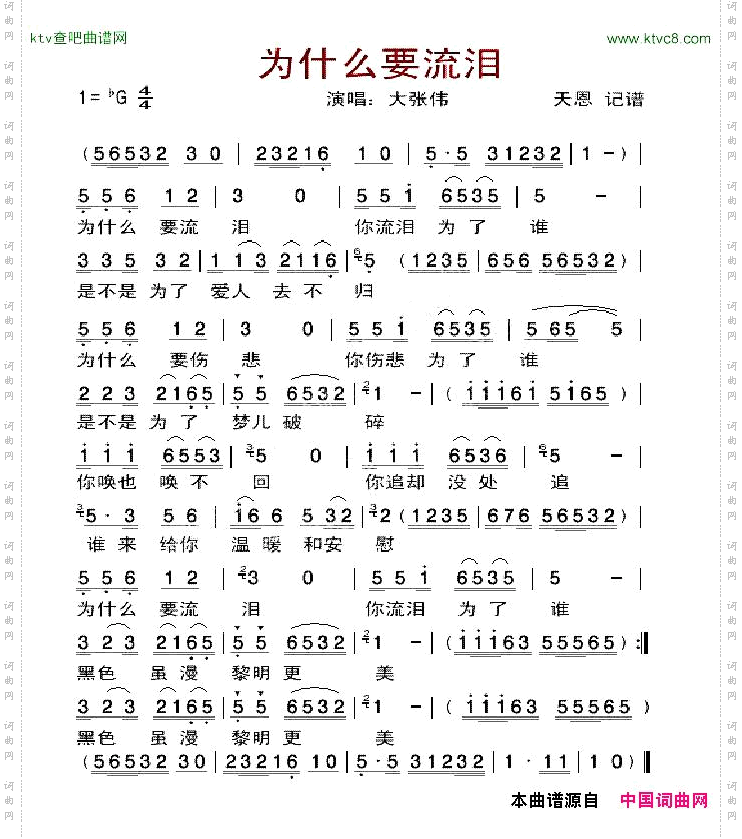 ktv查吧曲谱网
www.ktvc8.com
为什么要流泪
1=♭G 4/4 演唱：大张伟 天恩 记谱
(56532 30 | 23216 10 | 5·5 31232 | 1 -) |
556 12 | 3 0 | 551 6535 | 5 - |
为什么 要流 泪 你流泪 为了 谁
335 32 | 113 2116 | 65 (1235 | 656 56532) |
是不是 为了 爱人 去不 归
556 12 | 3 0 | 551 6535 | 565 5 |
为什么 要伤 悲 你伤悲 为了 谁
223 2165 | 55 6532 | 21 - | (11161 5165) |
是不是 为了 梦儿 破 碎
111 6553 | 35 0 | 111 6536 | 65 - |
你唤也 唤不 回 你追却 没处 追
35·3 56 | 166 532 | 32 (1235 | 676 56532) |
谁来 给你 温暖 和安 慰
556 12 | 23 0 | 551 6535 | 5 - |
为什么 要流 泪 你流泪 为了 谁
323 2165 | 55 6532 | 21 - | (11163 55565) :||
黑色 虽漫 黎明更 美
323 2165 | 55 6532 | 21 - | (11163 55565)
黑色 虽漫 黎明更 美
(56532 30 | 23216 10 | 5·5 31232 | 1·11 | 10) ||
本曲谱源自 中国词曲网